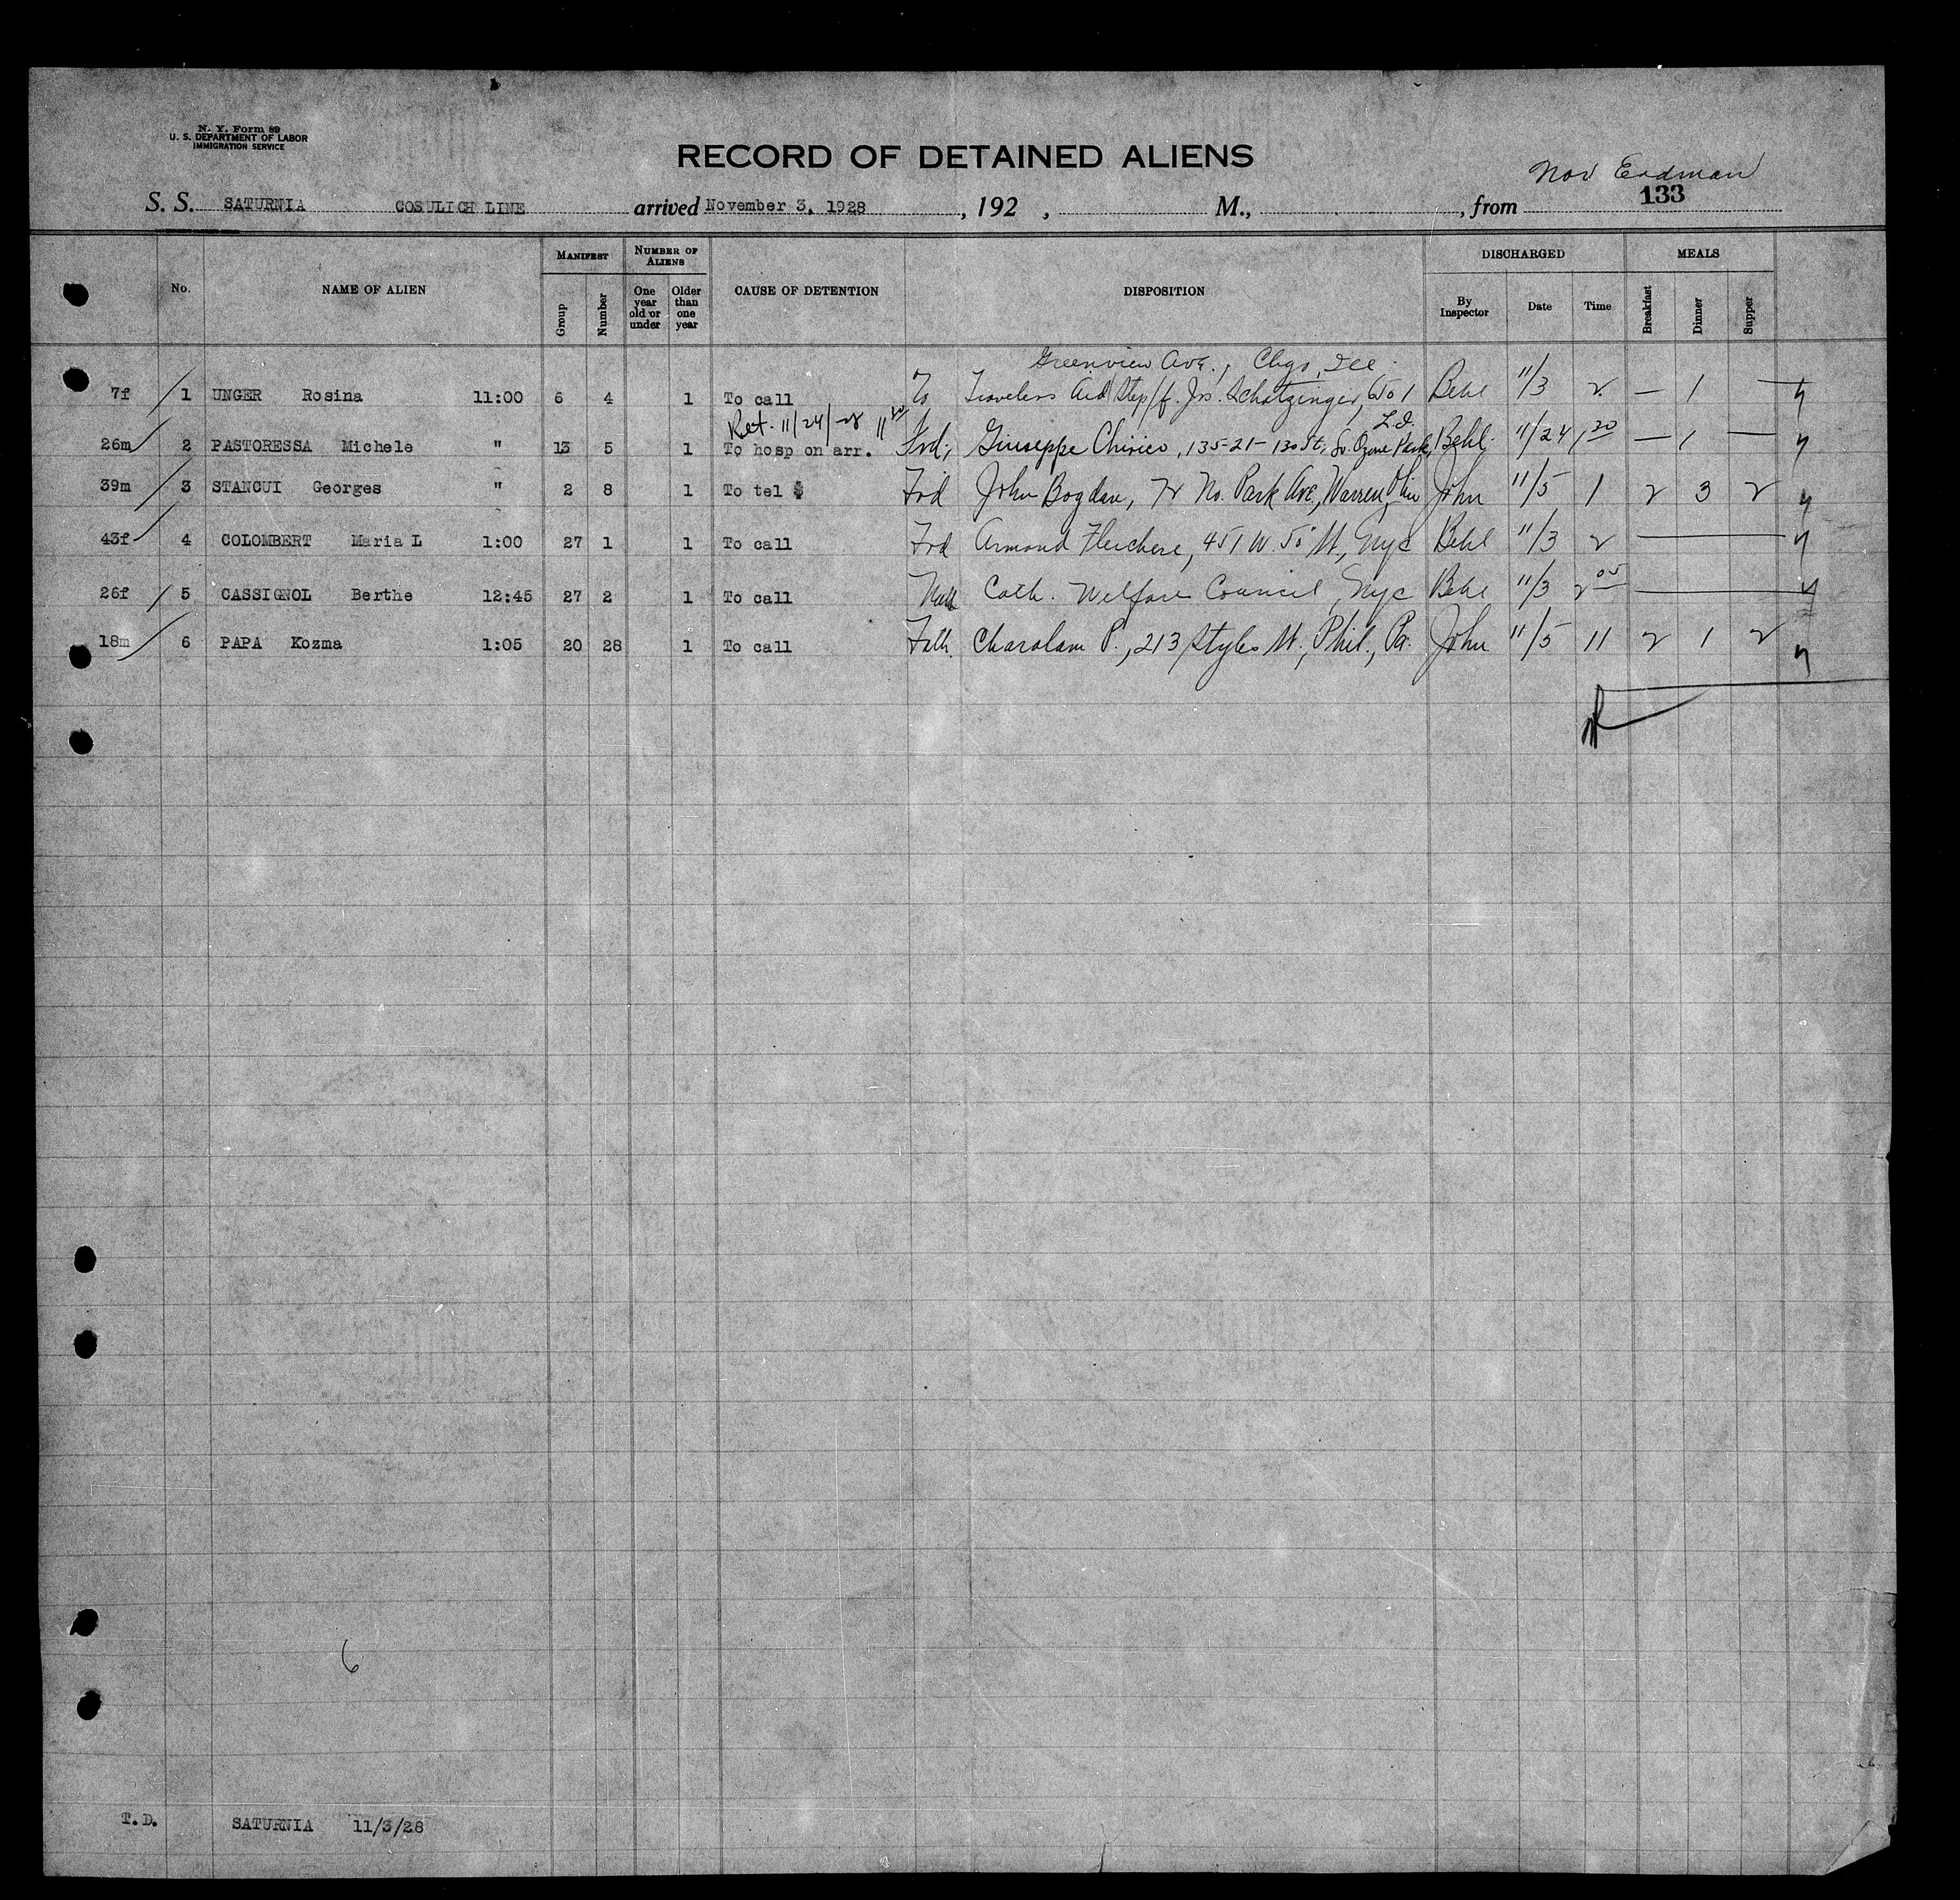 N. Y. Form 89
U. S. DEPARTMENT OF LABOR
IMMIGRATION SERVICE
RECORD OF DETAINED ALIENS
Nov Erdman
133
S. S. SATURNIA COSULICH LINE arrived November 3, 1928, 192 , M., , from
No. NAME OF ALIEN MANIFEST Group Number NUMBER OF ALIENS One year old or under Older than one year CAUSE OF DETENTION DISPOSITION DISCHARGED By Inspector Date Time MEALS Breakfast Dinner Supper
Greenview Ave., Chgo, Ill.
7f 1 UNGER Rosina 11:00 6 4 1 To call To Travelers Aid Step/f. Jos. Schatzinger, Behl 11/3 2 — 1 —
Ret. 11/24/28 11 20 L.I.
26m 2 PASTORESSA Michele " 13 5 1 To hosp on arr. Frd; Giuseppe Chirico, 135-21-130 St, So. Ozone Park, Behl 11/24 1 30 — 1 —
39m 3 STANCUI Georges " 2 8 1 To tel $ Frd John Bogdan, No. Park Ave, Warren, Ohio John 11/5 1 2 3 2
43f 4 COLOMBERT Maria L 1:00 27 1 1 To call Frd Armond, 451 W. 50 St, Nyc Behl 11/3 2
26f 5 CASSIGNOL Berthe 12:45 27 2 1 To call Natl Cath. Welfare Council, Nyc Behl 11/3 2 05
18m 6 PAPA Kozma 1:05 20 28 1 To call Fath. Charalam P., 213 Styles St., Phil., Pa. John 11/5 11 2 1 2
6
T.D. SATURNIA 11/3/28